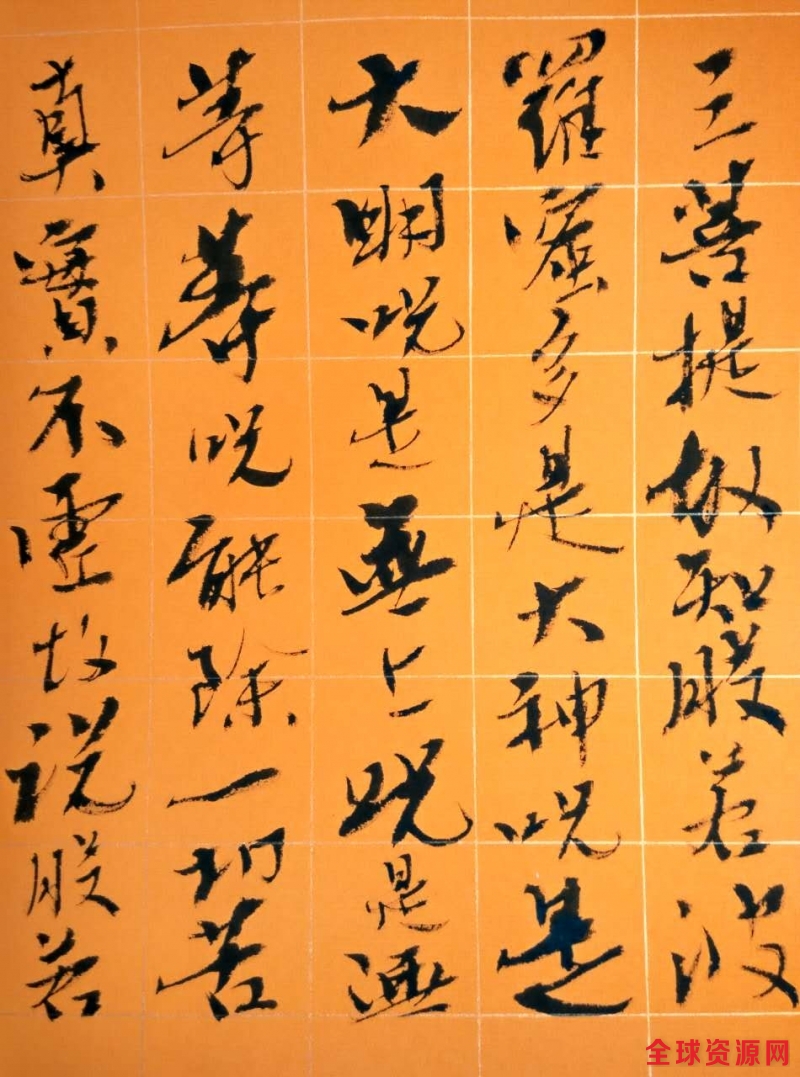 三菩提故知般若波
羅蜜多是大神呪是
大明呪是無上呪是無
等等呪能除一切苦
真實不虛故説般若
全球资源网